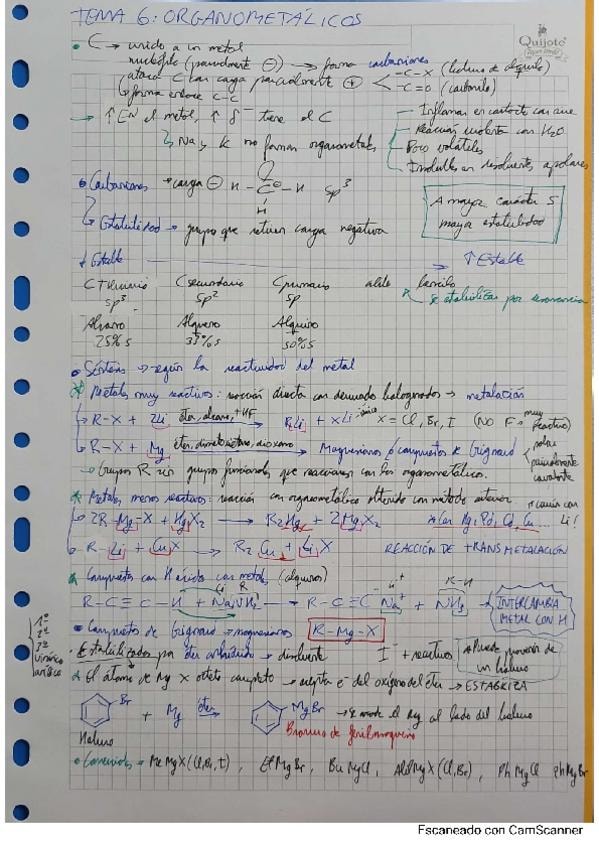 TEMA 6: ORGANOMETÁLICOS
Quijote
C → unido a un metal
nucleófilo (parcialmente ⊖) → forma carbaniones
ataca C con carga parcialmente ⊕
-C-X (haluro de alquilo)
-C=O (carbonilo)
forma enlace C-C
→ ↑ EN el metal, ↑ δ⁻ tiene el C
Na y K no forman organometales
- Inflaman en contacto con aire
- Reacción violenta con H₂O
- Poco volátiles
- Insolubles en disolventes apolares
Carbaniones → carga ⊖ H - C - H sp³
H
Estabilidad → grupo que retiran carga negativa
A mayor carácter S
mayor estabilidad
↓ Estable
↑ Estable
C terciario C secundario C primario alilo bencilo
sp³ sp² sp
Se estabilizan por resonancia
Alcano Alqueno Alquino
25% S 33% S 50% S
Síntesis → según la reactividad del metal
Metales muy reactivos: reacción directa con derivado halogenados → metalación
R-X + 2Li éter, alcano, THF RLi + XLi iónico X = Cl, Br, I (NO F = muy reactivo)
R-X + Mg éter, Magnesianos ó compuestos de Grignard
polar
parcialmente
covalente
→ Grupos R sin grupos funcionales que reaccionen con los organometálicos.
Metales menos reactivos: reacción con organometálico obtenido con método anterior
2R-Mg-X + HgX₂ → R₂Hg + 2MgX₂
R-Li + CuX → R₂Cu + LiX
REACCIÓN DE TRANSMETALACIÓN
Compuestos con H ácidos con metales (alquinos)
R-C≡C-H + NaNH₂ → R-C≡C⁻Na⁺ + NH₃
INTERCAMBIA
METAL CON H
Compuestos de Grignard → magnesianos R-Mg-X
1º
2º
3º
vinílico
arílico
Estabilizados por éter anhidro → disolvente I + reactivos
Puede provenir de
un haluro
El átomo de Mg X octeto completo → acepta e⁻ del oxígeno del éter → ESTABILIZA
Br + Mg éter MgBr → Se añade el Mg al lado del haluro
Haluro
Bromuro de fenilmagnesio
Comerciales → MeMgX (Cl, Br, I), EtMgBr, BuMgCl, AlilMgX (Cl, Br), PhMgCl PhMgBr
Escaneado con CamScanner